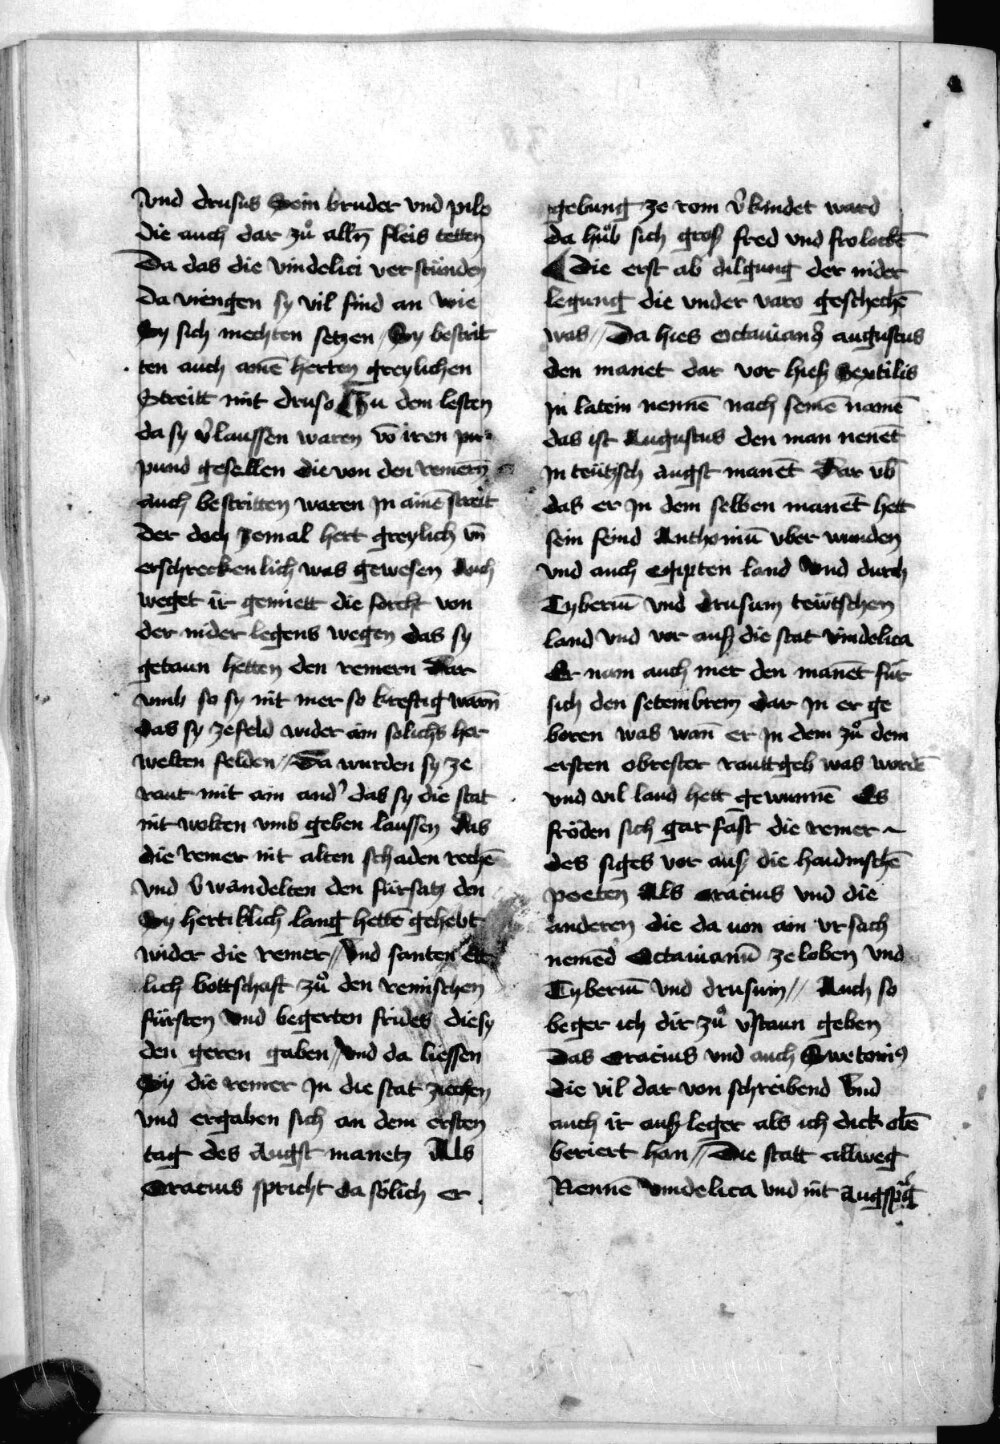 vnd drusus Sein bruder vnd pilo
die auch dar zuͦ alln̄ fleis tetten
Da das die vindelici ver stuͤnden
da viengen sy vil find an wie
Sy sich mechten setzen / Sy bestrit
ten auch ainē herten greylichen
Streitt mit druso Zu dem lesten
da sy v̓laussen waren vō iren pur
pund gesellen die von den remern̄
auch bestritten waren Jn ainē streit
der doch zemal hert greylich vn̄
erschreckenlich was gewesen Auch
weget ir gemiett die forcht von
der nider legens wegen das sy
getaun hetten den remern Dar
vmb so sy nit mer so kreftig warn̄
das sy ze feld wider ain solichs her
welten felden // Da wurden sy ze
raut mit ain and̓ das sy die stat
nit wolten vmb geben laussen das
die remer nit alten schaden rechē
vnd v̓wandelten den fuͤrsatz den
Sy hertiklich lang hettē gehebt
wider die remer // Vnd santen ett
lich bottschaft zuͦ den remischen
fuͤrsten Vnd begerten frides die sy
den geren gaben / Vnd da liessen
Sy die remer Jn die stat ziechen
vnd ergaben sich an dem ersten
tag des Augst manetz Als
Oracius spricht da soͤlich er
gebung ze rom v̓kindet ward
da huͤb sich groß fred vnd frolockē
Die erst ab dilgung der nider
legung die vnder varo geschechē
was // Da hies Octauian9 augustus
den manet dar vor hieß Sextilis
Jn latein nennē nach seinē namē
das ist Augustus den man nenēt
Jn teuͤtzsch augst manēt Dar vb̄
das er Jn dem selben manēt hett
sein feind Anthoniū vber wunden
vnd auch egipten land Vnd durch
Tyberiū vnd drusum teuͤtschen
land vnd vor auß die stat vindelica
Er nam auch mer den manēt fuͤr
sich den setembrem dar Jn er ge
boren was wan̄ er Jn dem zuͦ dem
ersten obrester rauttgeb was wordē
vnd vil land hett gewunnē Es
froͤden sich gar fast die remer ~
des siges vor auß die haidnischē
poeten Als oracius vnd die
anderen die da von ain vrsach
nemed Octauianū ze loben vnd
Tyberiū vnd drusum // Auch so
beger ich dir zuͦ v̓staun geben
das oracius vnd auch Swetoni9
die vil dar von schreibend Vnd
auch ir auß leger als ich dick obē
beriert han // Die statt allweg
Nennē vindelica vnd nit augspurg